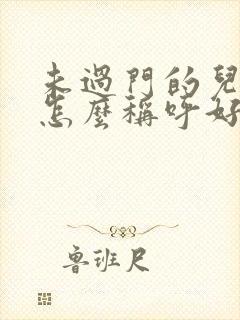 未過門的兒
怎麼稱呼好
魯班尺